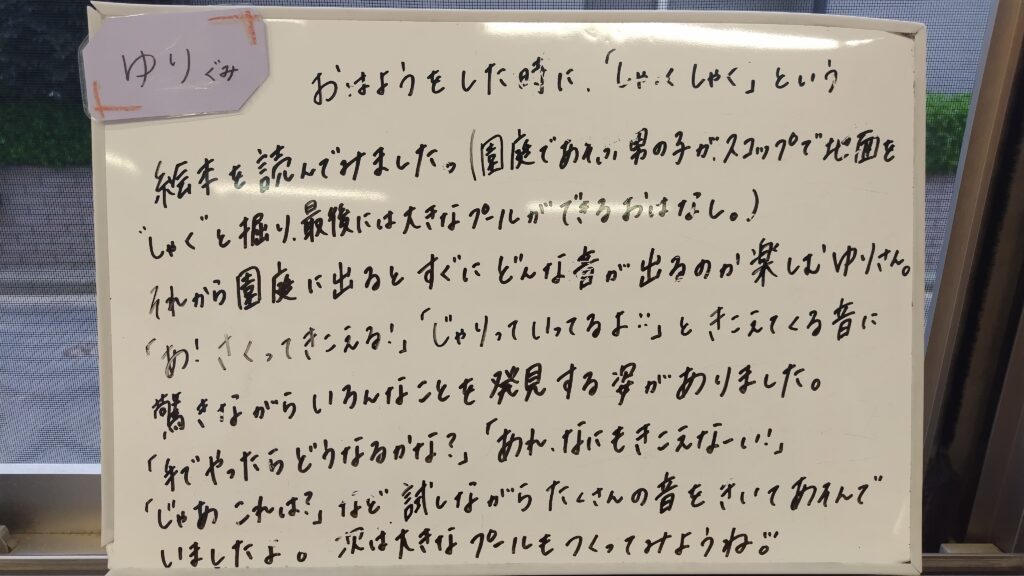 ゆりぐみ
おはようをした時に、「しゃくしゃく」という
絵本を読んでみました。(園庭であそぶ男の子が、スコップで地面を
"しゃく"と掘り、最後には大きなプールができるおはなし。)
それから園庭に出るとすぐにどんな音が出るのか楽しむゆりさん。
「あ!さくってきこえる!」「じゃりっていってるよ!!」ときこえてくる音に
驚きながらいろんなことを発見する姿がありました。
「手でやったらどうなるかな?」「あれ、なにもきこえなーい!」
「じゃあこれは?」など試しながらたくさんの音をきいてあそんで
いましたよ。次は大きなプールもつくってみようね!!